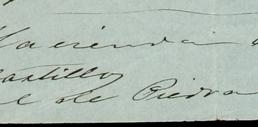 Hacienda
Castillo
de Piedra